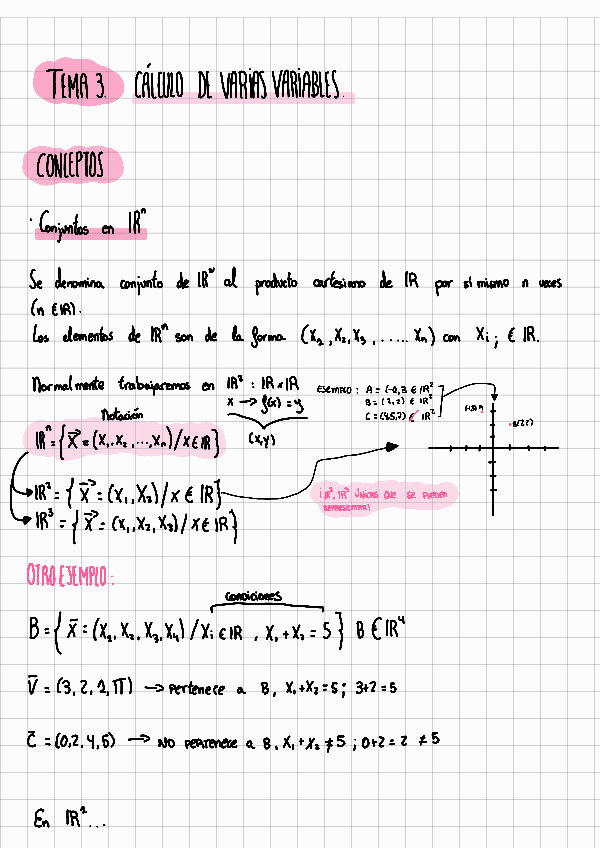 TEMA 3. CÁLCULO DE VARIAS VARIABLES.
CONCEPTOS
· Conjuntos en ℝⁿ
Se denomina conjunto de ℝⁿ al producto cartesiano de ℝ por sí mismo n veces
(n ∈ ℝ).
Los elementos de ℝⁿ son de la forma (X₁, X₂, X₃, ..... Xₙ) con Xᵢ ; ∈ ℝ.
Normalmente trabajaremos en ℝ² : ℝ × ℝ
x → f(x) = y
(x,y)
EJEMPLO : A = (-1,3) ∈ ℝ²
B = (2,2) ∈ ℝ²
∈ ℝ²
B(2,2)
Notación
ℝⁿ = { X⃗ = (X₁, X₂, ..., Xₙ) / x ∈ ℝ }
ℝ² = { X⃗ = (X₁, X₂) / x ∈ ℝ }
ℝ³ = { X⃗ = (X₁, X₂, X₃) / x ∈ ℝ }
¡ ℝ², ℝ³ ÚNICOS QUE SE PUEDEN
REPRESENTAR!
OTRO EJEMPLO :
condiciones
B = { X̄ = (X₁, X₂, X₃, X₄) / Xᵢ ∈ ℝ , X₁ + X₂ = 5 } B ∈ ℝ⁴
V̄ = (3, 2, 1, π) → Pertenece a B, X₁ + X₂ = 5 ; 3+2 = 5
C̄ = (0, 2, 4, 5) → NO PERTENECE a B, X₁ + X₂ ≠ 5 ; 0+2 = 2 ≠ 5
En ℝ² ...